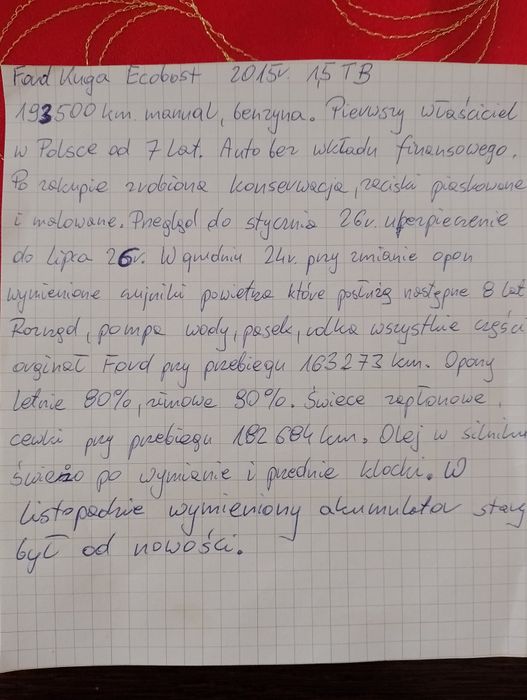 Ford Kuga Ecobost 2015r. 1,5 TB
193500 km. manual, benzyna. Pierwszy właściciel
w Polsce od 7 lat. Auto bez wkładu finansowego.
Po zakupie zrobiona konserwacja, zaciski piaskowane
i malowane. Przegląd do stycznia 26r. ubezpieczenie
do lipca 26r. W grudniu 24r. przy zmianie opon
wymienione czujniki powietrza które posłużą następne 8 lat
Rozrząd, pompa wody, pasek, rolka wszystkie części
orginał Ford przy przebiegu 163273 km. Opony
letnie 80%, zimowe 90%. Świece zapłonowe,
cewki przy przebiegu 182684 km. Olej w silniku
świeżo po wymianie i przednie klocki. W
listopadzie wymieniony akumulator stary
był od nowości.